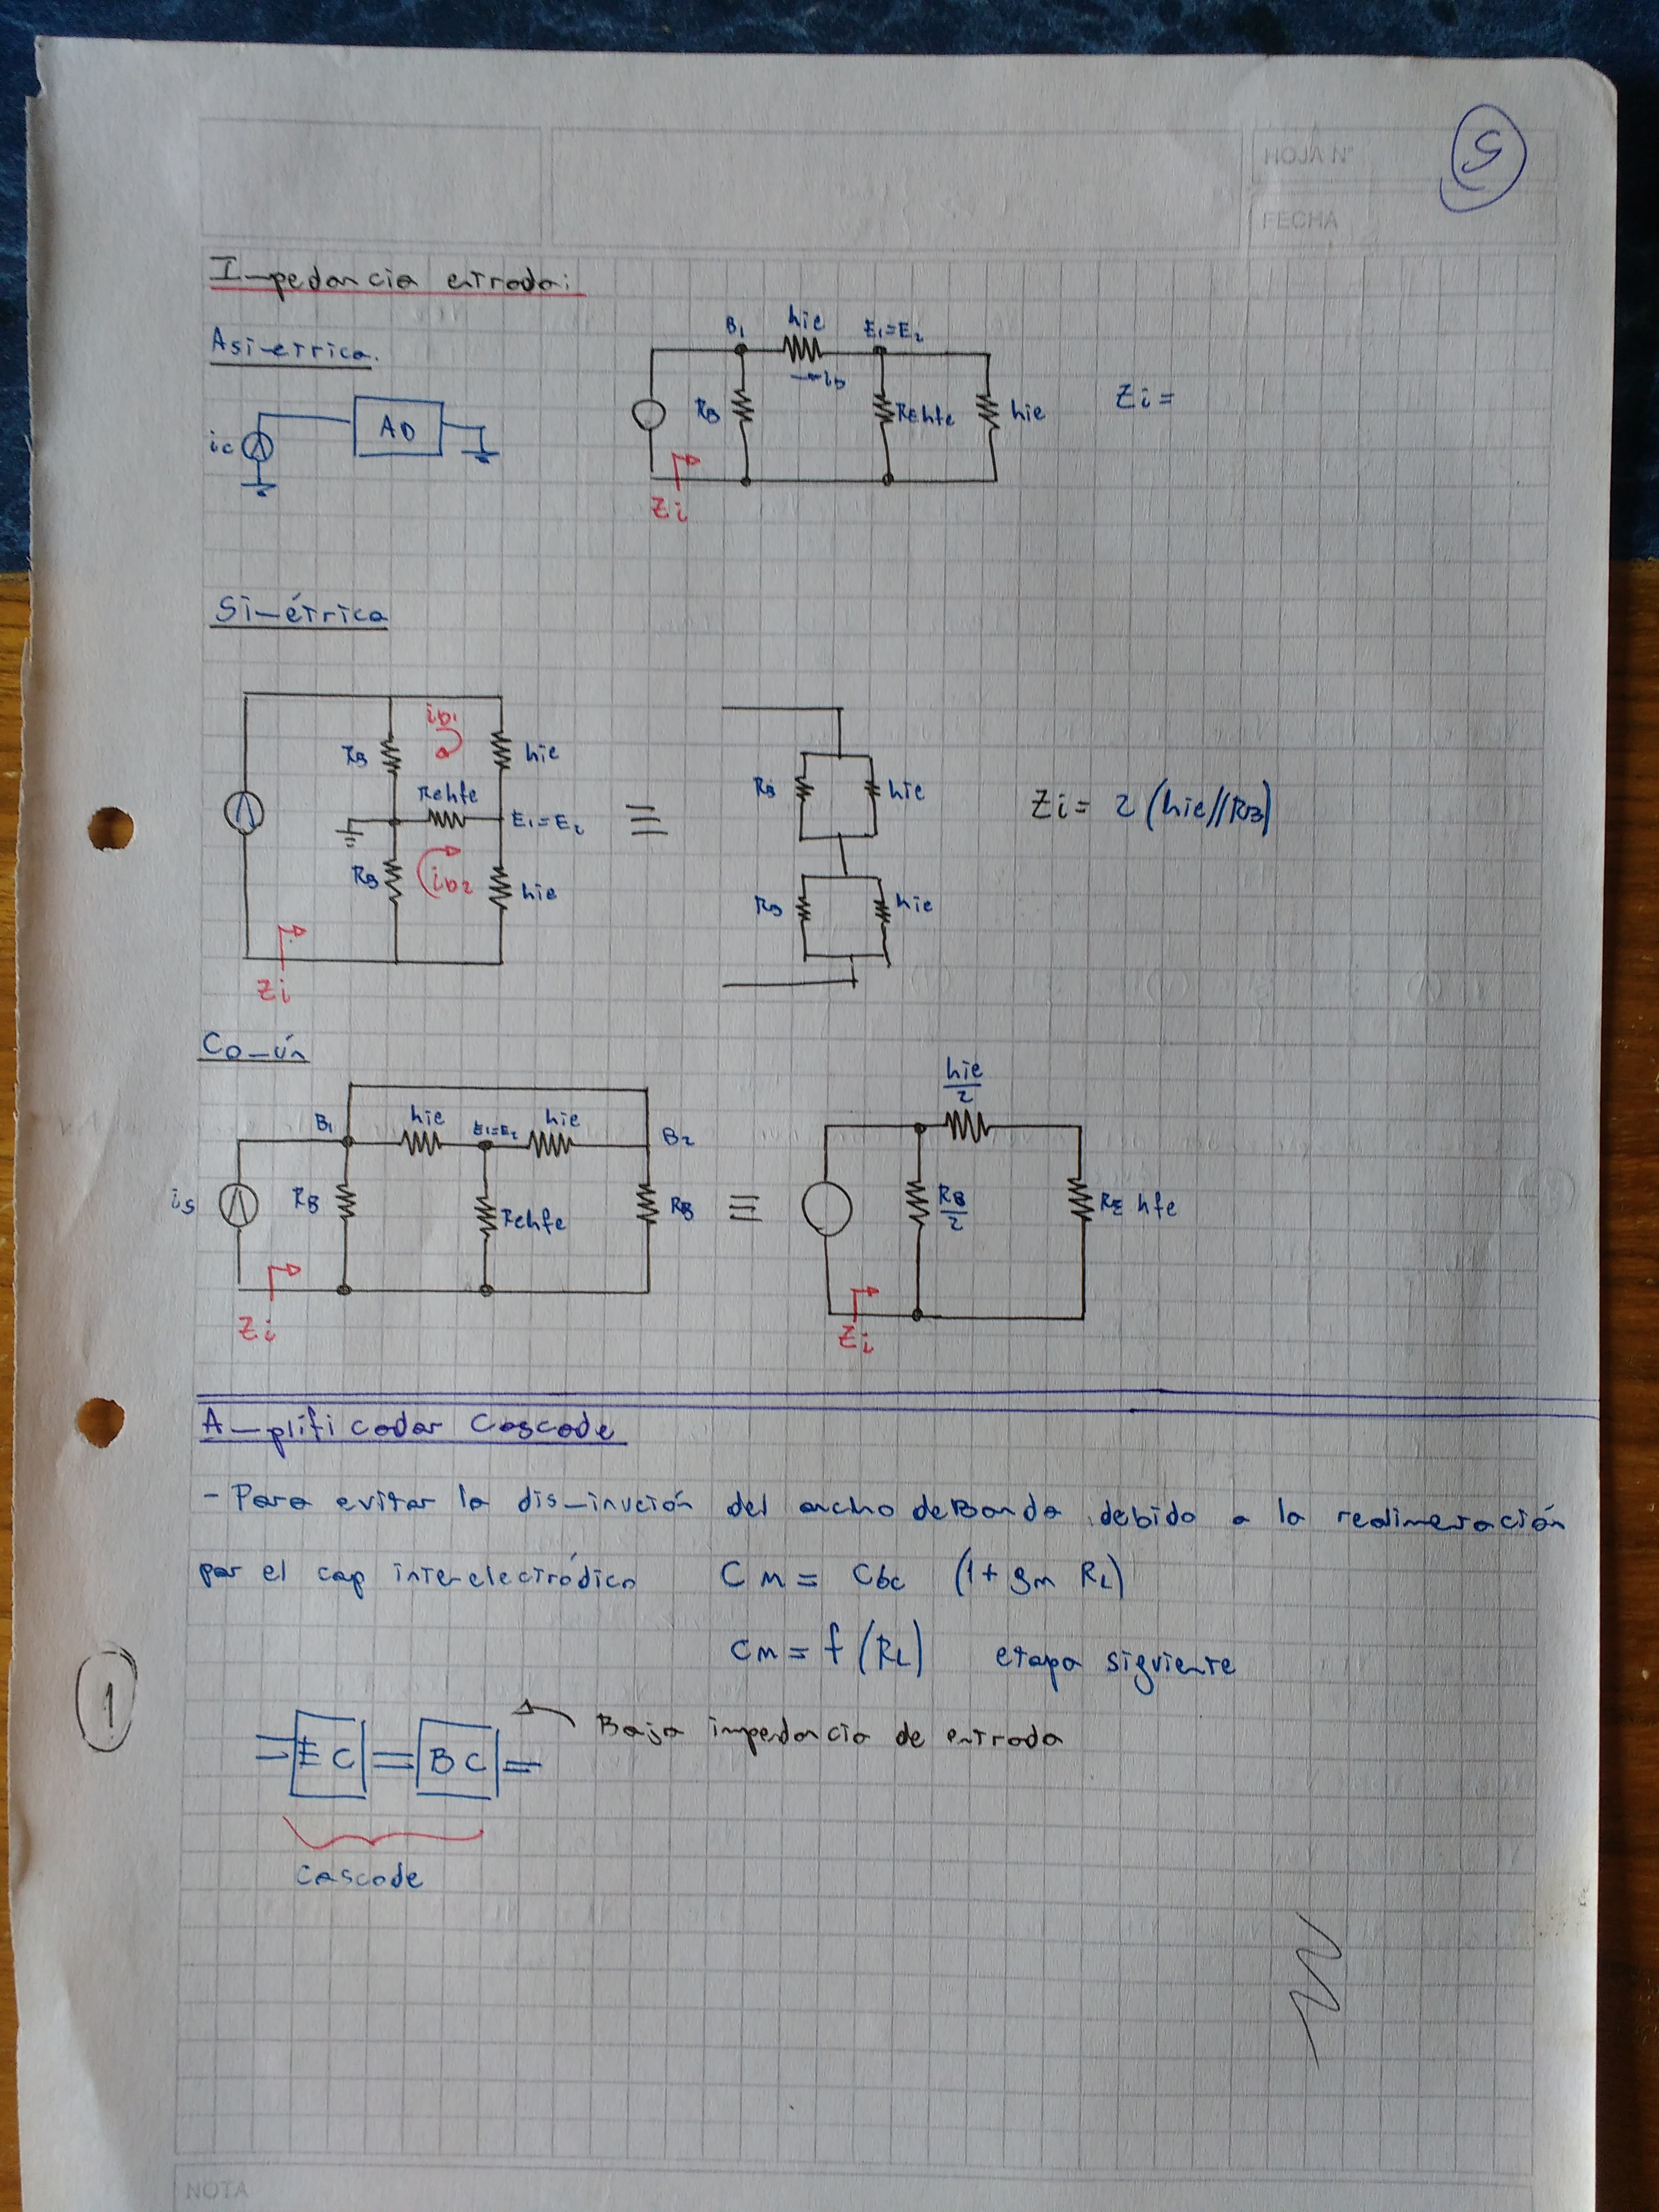 HOJA N°
5
FECHA
Impedancia entrada:
Asimétrica.
B1 hie E1=E2
ib
ic AD
RB REhfe hie
Zi =
Zi
Simétrica
ib1
RB hie
Rehfe
E1=E2
RB ib2 hie
Zi
≡
RB hie
RB hie
Zi = 2 (hie//RB)
Común
B1 hie E1=E2 hie B2
is RB Rehfe RB
Zi
≡
hie/2
RB/2 RE hfe
Zi
Amplificador Cascode
- Para evitar la disminución del ancho de Banda debido a la realimentación
por el cap interelectródico CM = Cbc (1+ gm RL)
CM = f (RL) etapa siguiente
1
Baja impedancia de entrada
EC BC
Cascode
NOTA